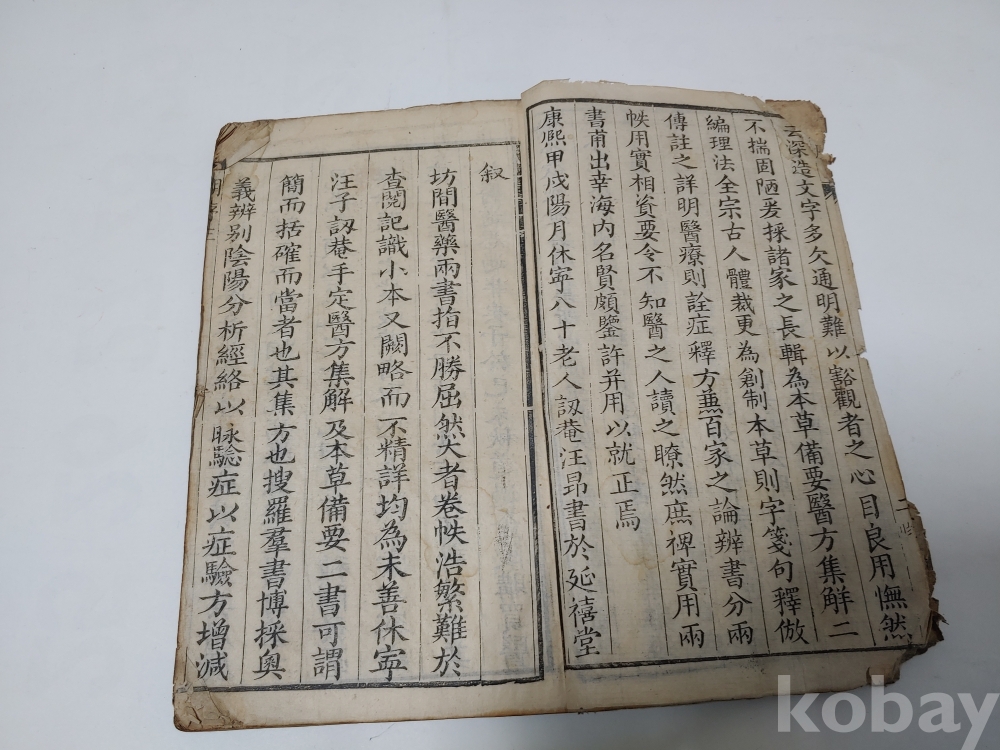 云深造文字多欠通明難以豁觀者之心目良用憮然
不揣固陋爰採諸家之長輯為本草備要醫方集解二
編理法全宗古人體裁更為創制本草則字箋句釋倣
傳註之詳明醫療則詮症釋方兼百家之論辨書分兩
帙用實相資要令不知醫之人讀之瞭然庶裨實用兩
書甫出幸海內名賢頗鑒許并用以就正焉
康熙甲戌陽月休寧八十老人訒菴汪昂書於延禧堂
叙
坊間醫藥兩書指不勝屈然大者卷帙浩繁難於
查閱記識小本又闕略而不精詳均為未善休寧
汪子訒菴手定醫方集解及本草備要二書可謂
簡而括確而當者也其集方也搜羅羣書博採奥
義辨別陰陽分析經絡以脉驗症以症驗方增減
kobay